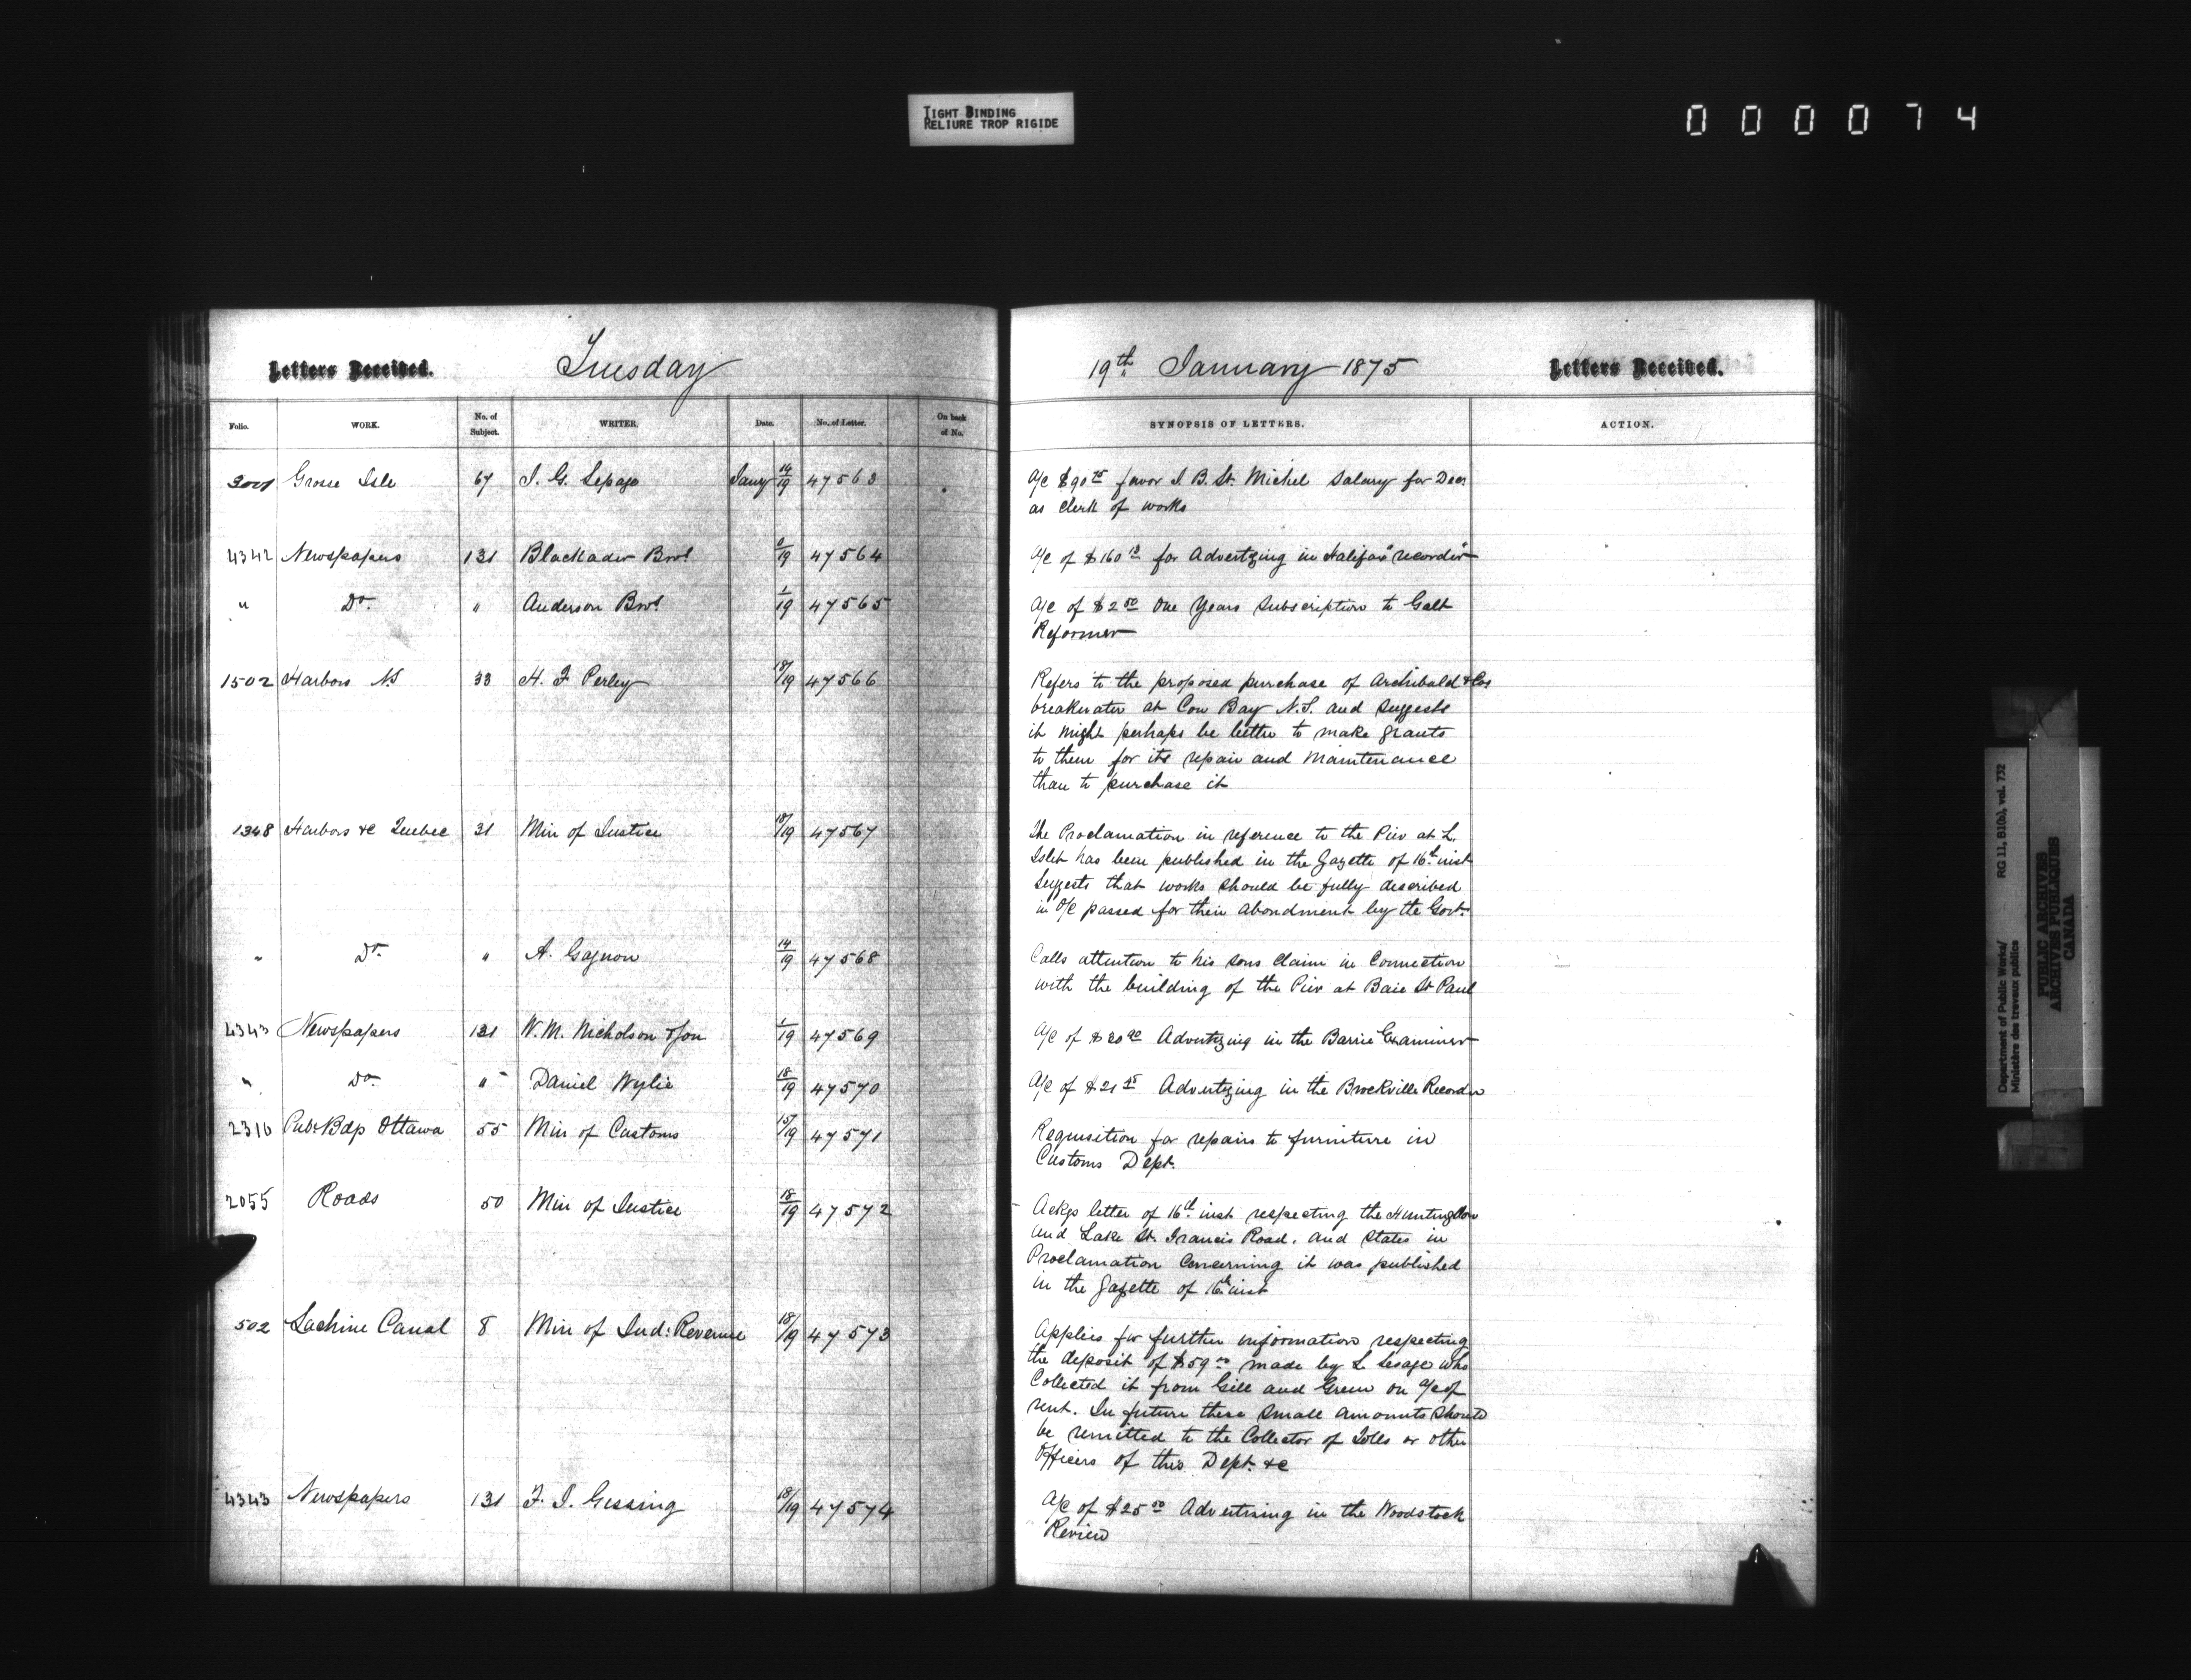 TIGHT BINDING
RELIURE TROP RIGIDE
000074
Letters Received. Tuesday
Folio. WORK. No. of Subject. WRITER. Date. No. of Letter. On back of No.
Grosse Isle 67 J. G. Lepage Jany 14/19 47563
4342 Newspapers 131 Blackadar Bros 19 47564
" Do. " Anderson Bros 1/19 47565
1502 Harbors NS 33 H. F Perley 18/19 47566
1348 Harbors &c Quebec 31 Min of Justice 18/19 47567
" Do. " A. Gagnon 14/19 47568
4343 Newspapers 131 W. M. Nicholson & Son 1/19 47569
" Do. " Daniel Wylie 18/19 47570
2310 Pub: Bdgs Ottawa 55 Min of Customs 15/19 47571
2055 Roads 50 Min of Justice 18/19 47572
502 Lachine Canal 8 Min of Ind: Revenue 18/19 47573
4343 Newspapers 131 F. J. Gissing 18/19 47574
19th January 1875 Letters Received.
SYNOPSIS OF LETTERS. ACTION.
A/c $90 75 favor J. B. St. Michel Salary for Decr
as Clerk of works
A/c of $160 for Advertizing in Halifax "recorder"
A/c of $2 50 One Years Subscription to Galt
Reformer
Refers to the proposed purchase of Archibald & Cos
breakwater at Cow Bay N.S. and suggests
it might perhaps be better to make grants
to them for its repair and Maintenance
than to purchase it
The Proclamation in reference to the Pier at L.
Islet has been published in the Gazette of 16th inst
Suggests that works should be fully described
in O/C passed for their abondment by the Govt.
Calls attention to his sons Claim in Connection
with the building of the Pier at Baie St Paul
A/c of Advertizing in the Barrie Examiner
A/c of $21 Advertizing in the Brockville Recorder
Requisition for repairs to furniture in
Customs Dept.
Ackgs letter of 16th inst respecting the Huntingdon
and Lake St. Francis Road. and States in
Proclamation Concerning it was published
in the Gazette of 16th inst
Applies for further information respecting
the deposit of $59 00 made by L Lesage who
Collected it from Gill and Green on a/c of
rent. In future these Small amounts Should
be remitted to the Collector of Tolls or other
Officers of this Dept. &c
A/c of $25 50 Advertising in the Woodstock
Review
Department of Public Works/
Ministère des travaux publics
RG 11, B1(b), vol. 732
PUBLIC ARCHIVES
ARCHIVES PUBLIQUES
CANADA